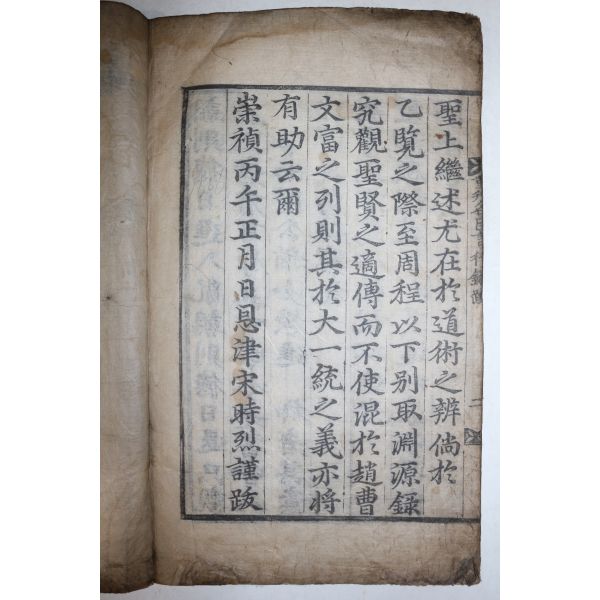 聖上繼述尤在於道術之辨倘於
乙覽之際至周程以下別取淵源錄
究觀聖賢之適傳而不使混於趙曹
文富之列則其於大一統之義亦將
有助云爾
崇禎丙午正月日恩津宋時烈謹跋